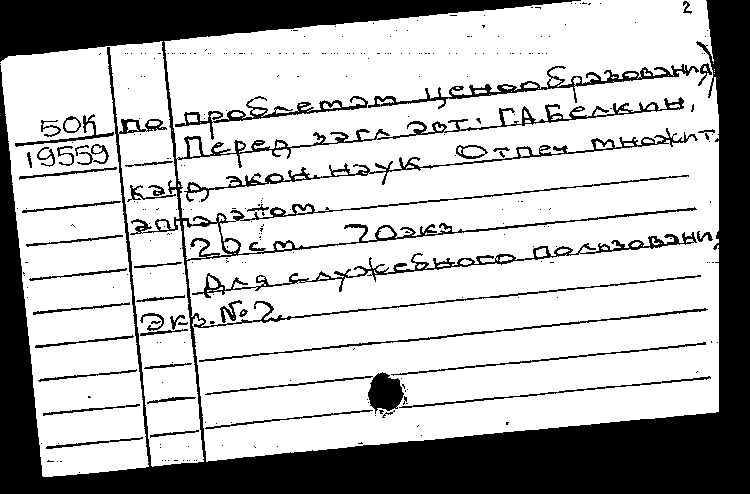 2
50К по проблемам ценообразования)
19559 Перед загл. авт.: Г.А.Белкин,
канд. экон. наук. Отпеч. множит.
аппаратом.
20см. 70экз.
Для служебного пользования
Экз. №2.